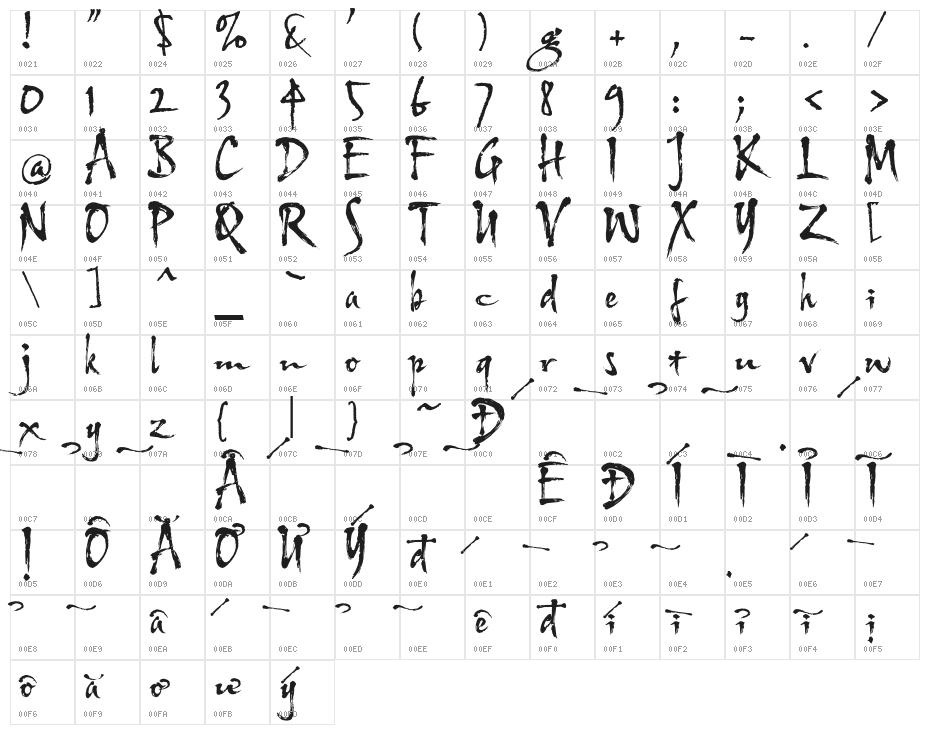 ! " $ % & ' ( ) g + , - . /
0021 0022 0024 0025 0026 0027 0028 0029 002A 002B 002C 002D 002E 002F
0 1 2 3 4 5 6 7 8 9 : ; < >
0030 0031 0032 0033 0034 0035 0036 0037 0038 0039 003A 003B 003C 003E
@ A B C D E F G H I J K L M
0040 0041 0042 0043 0044 0045 0046 0047 0048 0049 004A 004B 004C 004D
N O P Q R S T U V W X Y Z [
004E 004F 0050 0051 0052 0053 0054 0055 0056 0057 0058 0059 005A 005B
\ ] ^ _ ` a b c d e f g h i
005C 005D 005E 005F 0060 0061 0062 0063 0064 0065 0066 0067 0068 0069
j k l m n o p q r s t u v w
006A 006B 006C 006D 006E 006F 0070 0071 0072 0073 0074 0075 0076 0077
x y z { | } ~ Đ
0078 0079 007A 007B 007C 007D 007E 00C0 00C1 00C2 00C3 00C4 00C5 00C6
Â Ê Đ Í Ī Ỉ Ĩ
00C7 00CA 00CB 00CC 00CD 00CE 00CF 00D0 00D1 00D2 00D3 00D4
Ị Ô Ă Ơ Ư Ý đ
00D5 00D6 00D9 00DA 00DB 00DD 00E0 00E1 00E2 00E3 00E4 00E5 00E6 00E7
â ê đ í ī ỉ ĩ ị
00E8 00E9 00EA 00EB 00EC 00ED 00EE 00EF 00F0 00F1 00F2 00F3 00F4 00F5
ô ă ơ ư ý
00F6 00F9 00FA 00FB 00FD